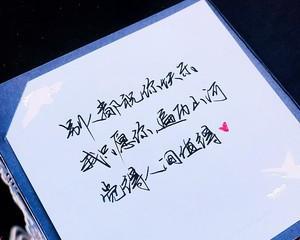 别人都祝你快乐
我只愿你遍历山河
觉得人间值得